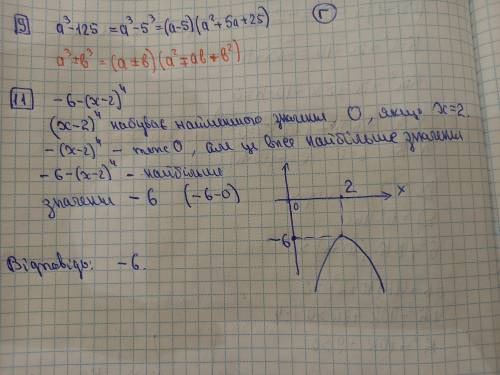 9 a³-125 = a³-5³ = (a-5)(a²+5a+25) Г
a³±b³ = (a±b)(a²∓ab+b²)
11 -6-(x-2)⁴
(x-2)⁴ набуває найменшого значення 0, якщо x=2.
-(x-2)⁴ - теж 0, але це вже найбільше значення
-6-(x-2)⁴ - найбільше
значення -6 (-6-0)
2
x
0
-6
Відповідь: -6.